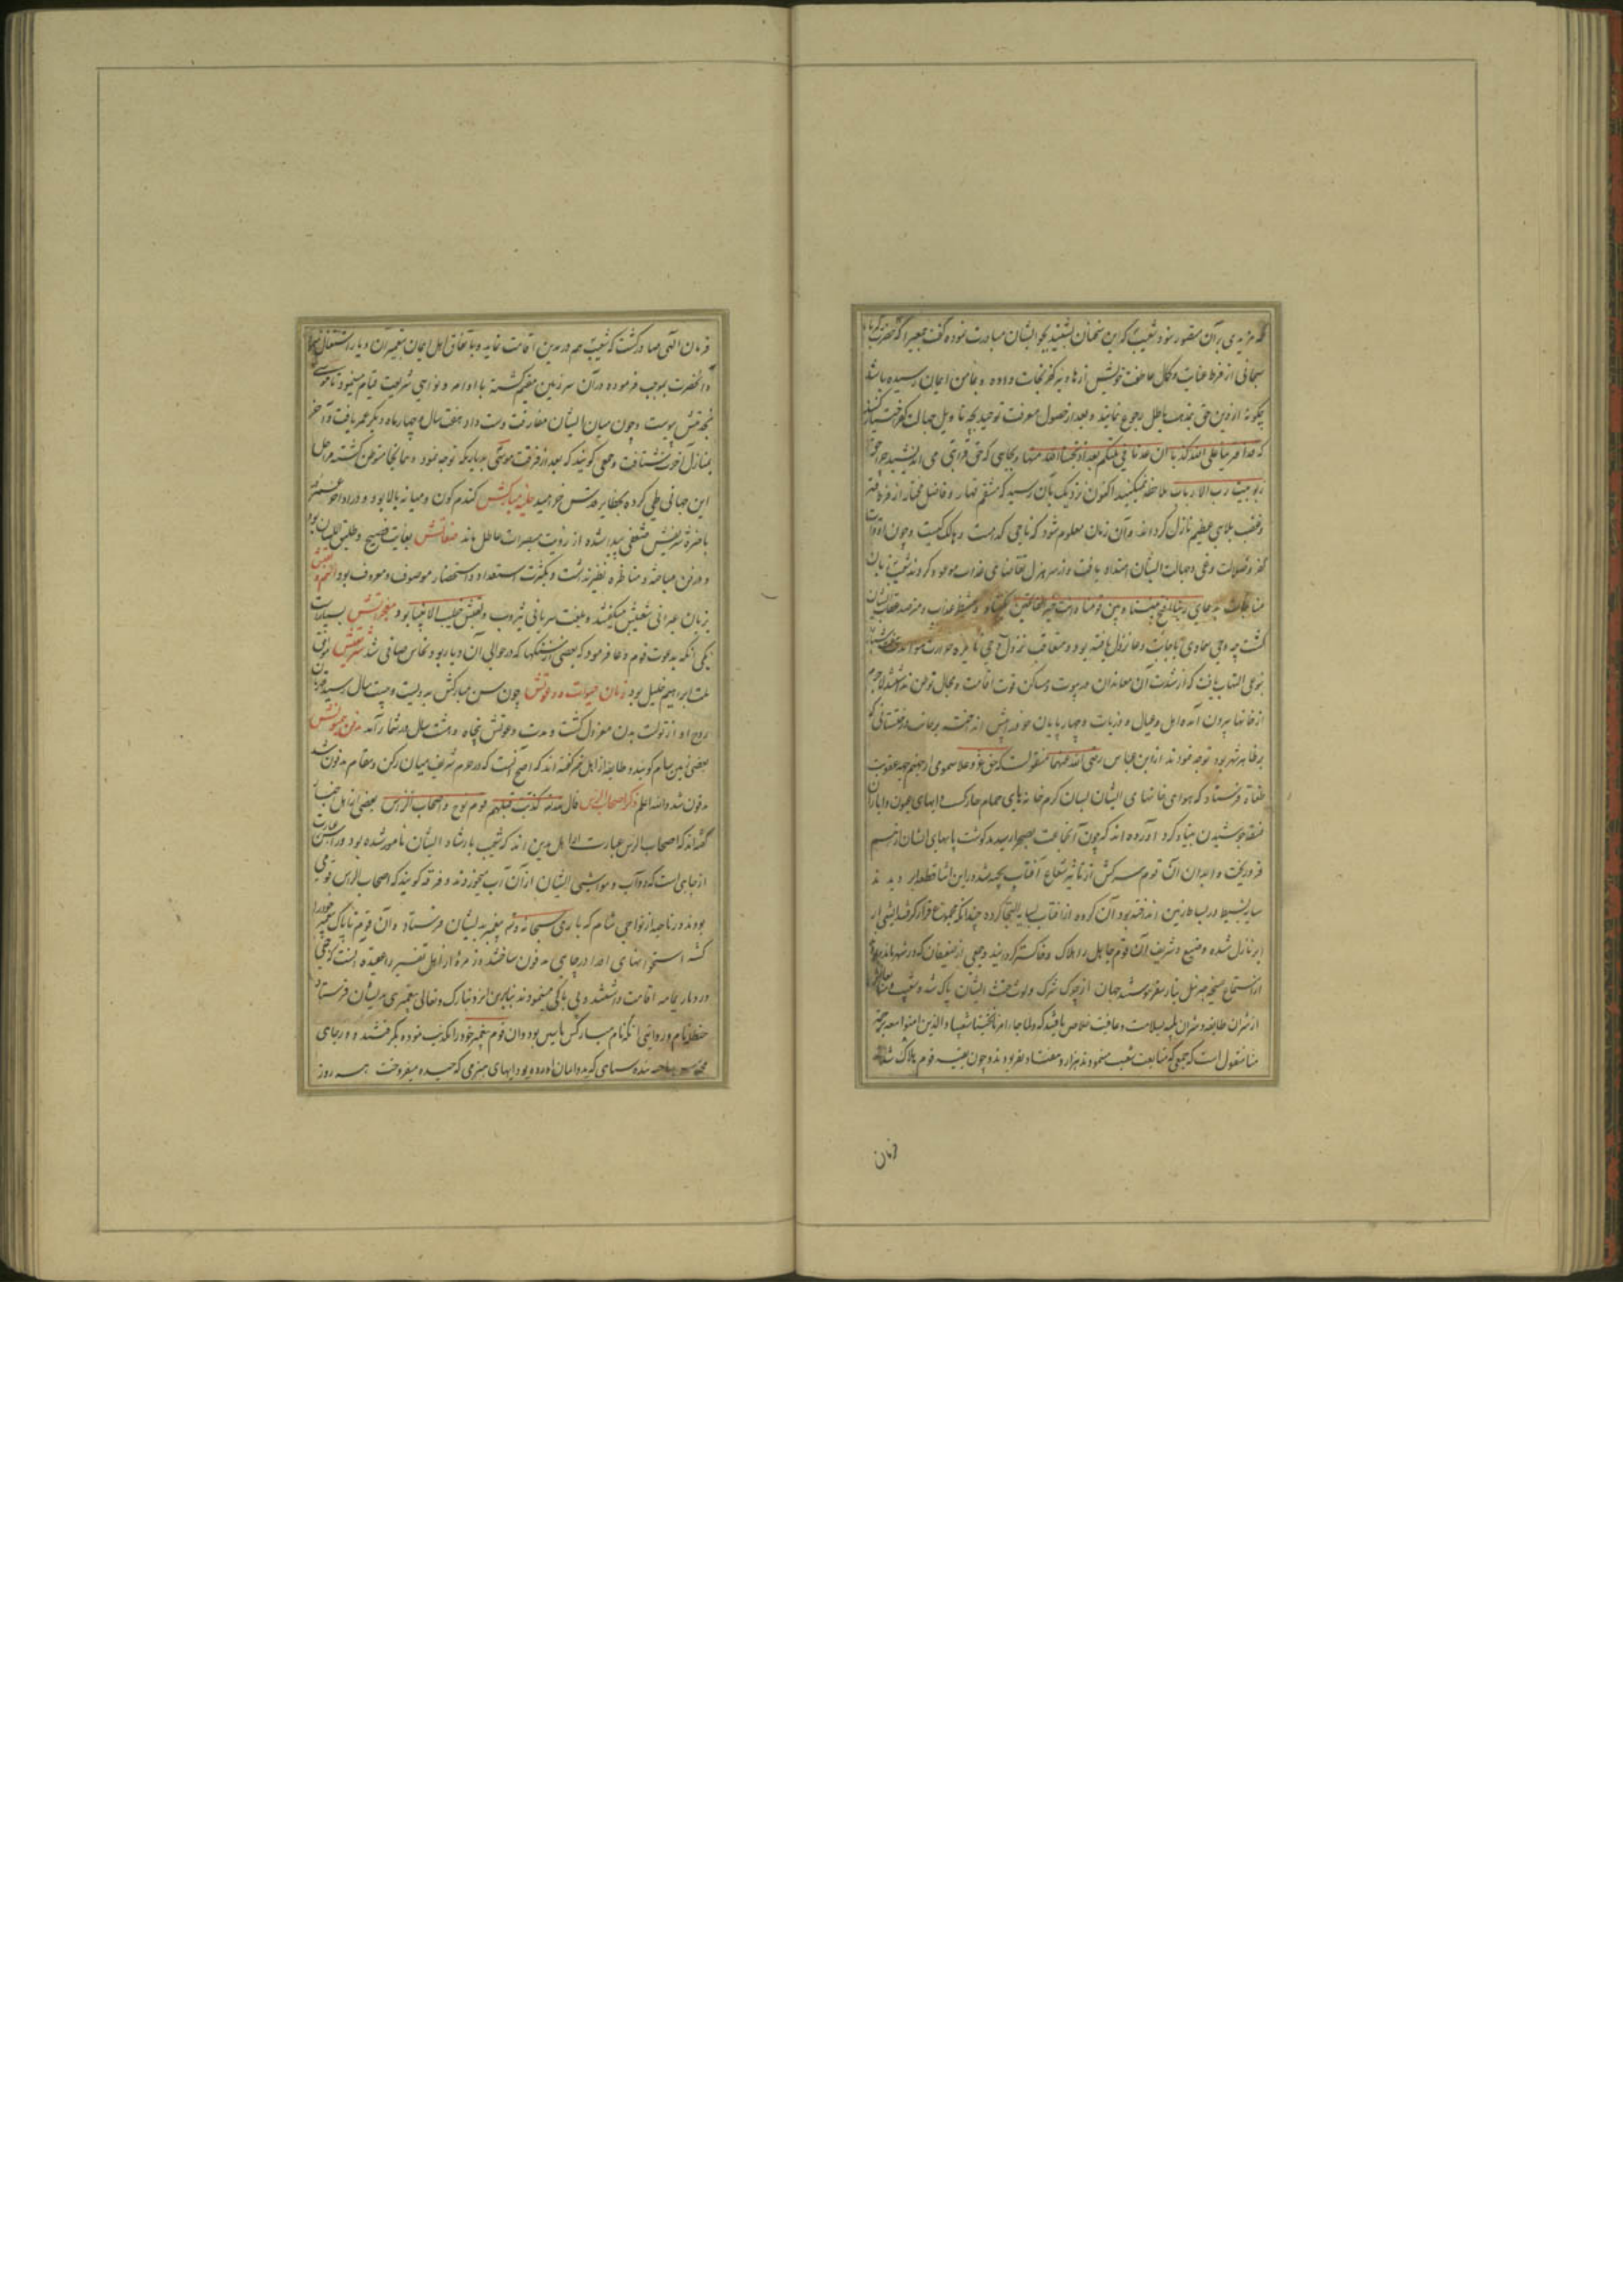 که مزیدی بر آن متصور نبود شعیب که این سخنان بشنید بجواب ایشان مبادرت نموده گفت جمعی را که حضرت
سبحانی از فرط عنایت و کمال عاطفت خویش از هاویه کفر نجات داده و بمامن ایمان رسیده باشند
چگونه از دین حق بمذهب باطل رجوع نمایند و بعد از حصول معرفت توحید بچه تاویل جهالت کفر اختیار کنند
که قد افترینا علی الله کذبا ان عدنا فی ملتکم بعد اذ نجینا الله منها و بجایی که حق
ربوبیت رب الارباب ملاحظه نمیکنید اکنون نزدیک بآن رسید که منتقم قهار و فاضل مختار از فرط
و غضب بلایی عظیم نازل گرداند و آن زمان معلوم شود که ناجی کدامست و هالک کیست و چون
کفر و ضلالت و غی و جهالت ایشان امتداد یافت
مناجات بدعای ربنا افتح بیننا و بین قومنا بالحق وانت خیر الفاتحین بگشاد و منتظر عذاب و مترصد عقاب ایشان
گشت چه وحی سماوی باجابت دعا نزول یافته بود و متعاقب نزول وحی نایره حرارت هوا
بنوعی التهاب یافت که از شدت آن معاندان در بیوت و مساکن قوت اقامت و مجال توطن نداشتند لاجرم
از خانها بیرون آمده اهل و عیال و ذریات و چهارپایان خود پیش انداخته بر جانب درختستانی که
بر ظاهر شهر بود توجه نمودند از ابن عباس رضی الله عنهما منقولست که حق عز و علا سمومی از جهنم بجهة عقوبت
طغاة فرستاد که هوای خانهای ایشان بسان کرم خانه‌های حمام حار گشت و آبهای عیون و آبار آن
منطقه جوشیدن بنیاد کرد آورده‌اند که چون آن جماعت بصحرا رسیدند گوشت پایهای ایشان از هم
فرو ریخت و ابدان آن قوم سرکش از تاثیر شعاع آفتاب پخته شد در این اثنا قطعه ابر دیدند
سایه بسیط در بساط زمین انداخته بود آن گروه از آفتاب بسایه التجا کرده چندانکه مجموع قرار گرفتند آتشی از
ابر نازل شده وضیع و شریف آن قوم جاهل را هلاک و خاکستر گردانید و جمعی از ضعیفان که در شهر مانده بودند
از استماع صیحه جبرئیل بنار سقر پیوستند جهان از چرک شرک و لوث خبث ایشان پاک شد و شعیب و متابعان
از شر آن طایفه و شر آن بلیه بسلامت و عافیت خلاص یافتند که ولما جاء امرنا نجینا شعیبا والذین امنوا معه برحمة
منا منقول است که جمعی که متابعت شعیب مینمودند هزار و هفتاد نفر بودند و چون بقیه قوم هلاک شدند
فرمان
فرمان الهی صادر گشت که شعیب هم در مدین اقامت نماید و باتفاق اهل ایمان بتعمیر آن دیار اشتغال
و آنحضرت بموجب فرموده در آن سرزمین مقیم گشته با اوامر و نواهی شریعت قیام مینمود تا موسی
بخدمتش پیوست و چون میان ایشان مفارقت دست داد هفت سال و چهار ماه دیگر عمر یافت
بمنازل آخرت شتافت و جمعی گویند که بعد از فرقت موسی بدیار مکه توجه نمود و همانجا متوطن گشته مراحل
این جهانی طی کرده بحظایر قدس خرامید حلیه مبارکش گندم گون و میانه بالا بود و در اواخر عمر
باصره شریفش منتفی پیدا شده از رویت مبصرات عاطل ماند صفاتش بغایت فصیح و طلیق اللسان بود
و در فن مباحثه و مناظره نظیر نداشت و بکثرت استعداد و استحضار موصوف و معروف بود اسم و لقبش
بزبان عبرانی شعیبش میگفتند و بلغت سریانی یثروب و لقبش خطیب الانبیا بود معجزاتش بسیارست
یکی آنکه بدعوت قوم دعا فرمود که بعضی از سنگها که در حوالی آن دیار بود نحاس صافی شد شریعتش موافق
ملت ابراهیم خلیل بود زمان حیات و دعوتش چون سن مبارکش به دویست و بیست سال رسید
روح او از تولیت بدن معزول گشت و مدت دعوتش پنجاه و هشت سال در شمار آمد مدفن همیونش
بعضی زمین شام گویند و طایفه از اهل خبر گفته‌اند که اصح آنست که در حرم شریف میان رکن و مقام مدفون شد
مدفون شد والله اعلم ذکر اصحاب الرس قال الله کذبت قبلهم قوم نوح و اصحاب الرس بعضی از اهل اخبار
گفته‌اند که اصحاب الرس عبارت از اهل مدین اند که شعیب بارشاد ایشان مامور شده بود و رس عبارت
از چاهی است که دواب و مواشی ایشان از آن آب میخوردند و فرقه گویند که اصحاب الرس قومی
بودند در ناحیه از نواحی شام که باری سبحانه و تع پیغمبر بدیشان فرستاد و آن قوم ناپاک پیغمبر خود را
کشته استخوانهای او را در چاهی مدفون ساختند و زمره از اهل تفسیر را عقیده آنست که جمعی
در دیار یمامه اقامت داشتند و بی باکی مینمودند بنابرین ایزد تبارک و تعالی پیغمبری بدیشان فرستاد
حنظله نام و روایتی آنکه نام مبارکش یاسین بود و آن قوم پیغمبر خود را تکذیب نموده بگرفتند و در چاهی
بنده سیاهی که بدو ایمان آورده بود ببهای هیزمی که چیده میفروخت هر روز